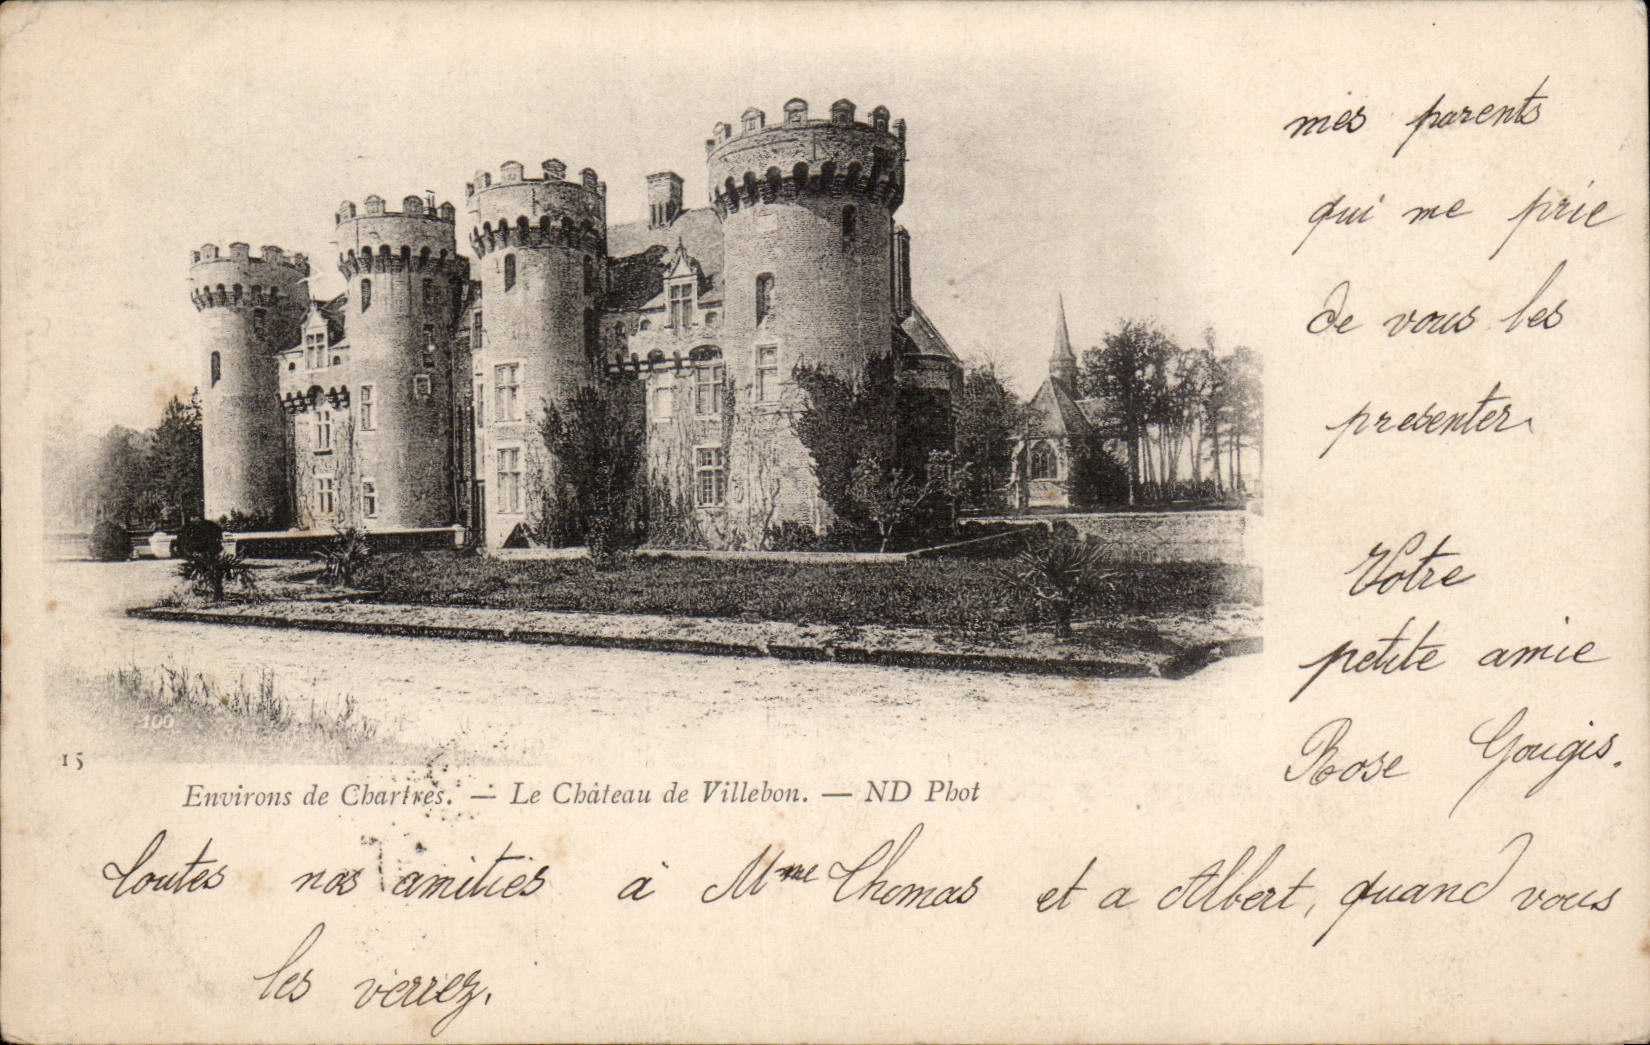 mes parents
qui me prie
de vous les
presenter.
Votre
petite amie
Rose Gougis.
100
15
Environs de Chartres. — Le Château de Villebon. — ND Phot
Toutes nos amitiés à Mme Thomas et a Albert, quand vous
les verrez.